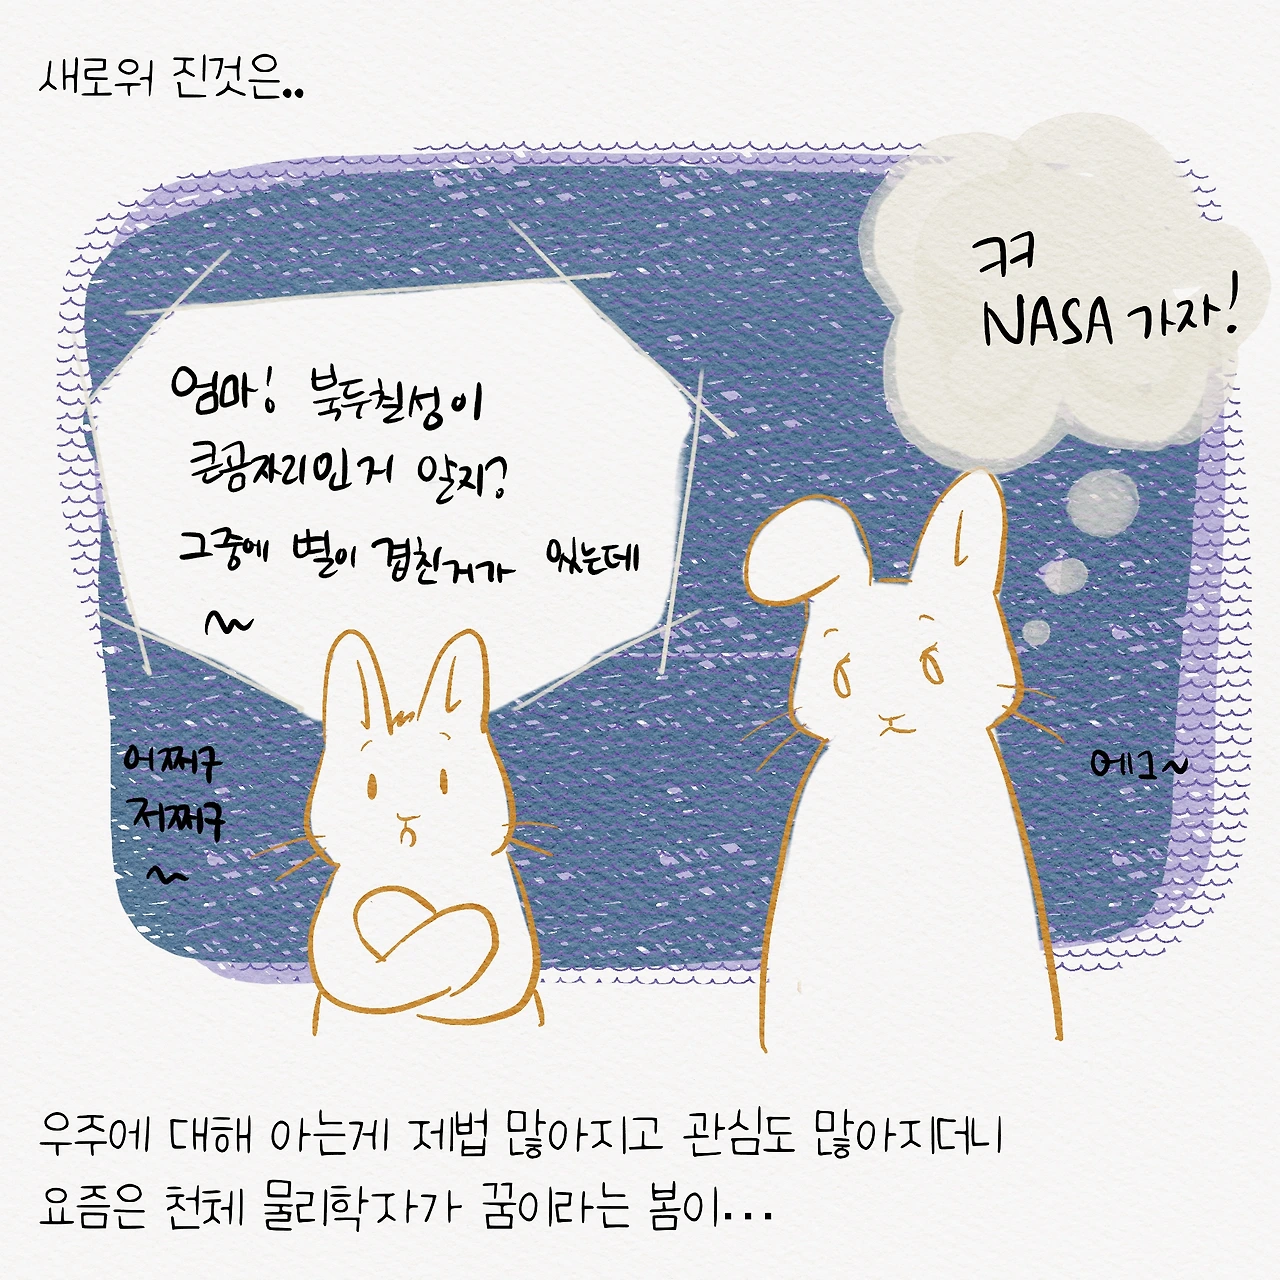 새로워 진것은..
ㅋㅋ
NASA 가자!
엄마! 북두칠성이
큰곰자리인거 알지?
그중에 별이 겹친거가 있는데
~
어쩌구
저쩌구
~
에그~
우주에 대해 아는게 제법 많아지고 관심도 많아지더니
요즘은 천체 물리학자가 꿈이라는 봄이...